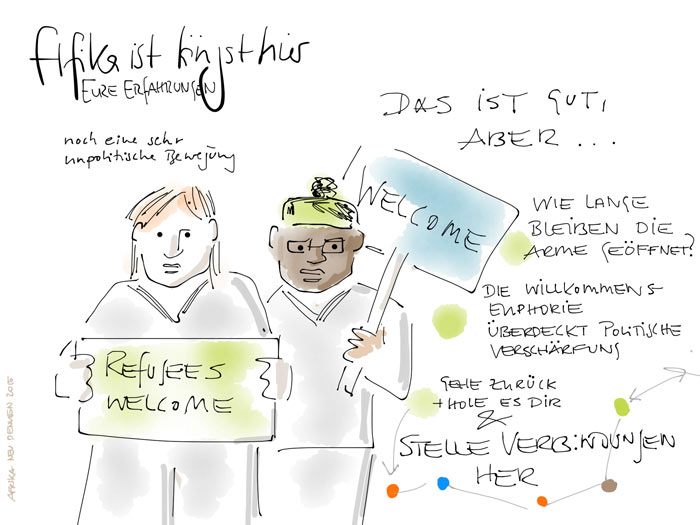 Afrika ist längst hier
EURE ERFAHRUNGEN
noch eine sehr
unpolitische Bewegung
DAS IST GUT,
ABER ...
WELCOME
REFUGEES
WELCOME
WIE LANGE
BLEIBEN DIE
ARME GEÖFFNET?
DIE WILLKOMMENS
EUPHORIE
ÜBERDECKT POLITISCHE
VERSCHÄRFUNG
GEHE ZURÜCK
+ HOLE ES DIR
&
STELLE VERBINDUNGEN
HER
AFRIKA NEU DENKEN 2015